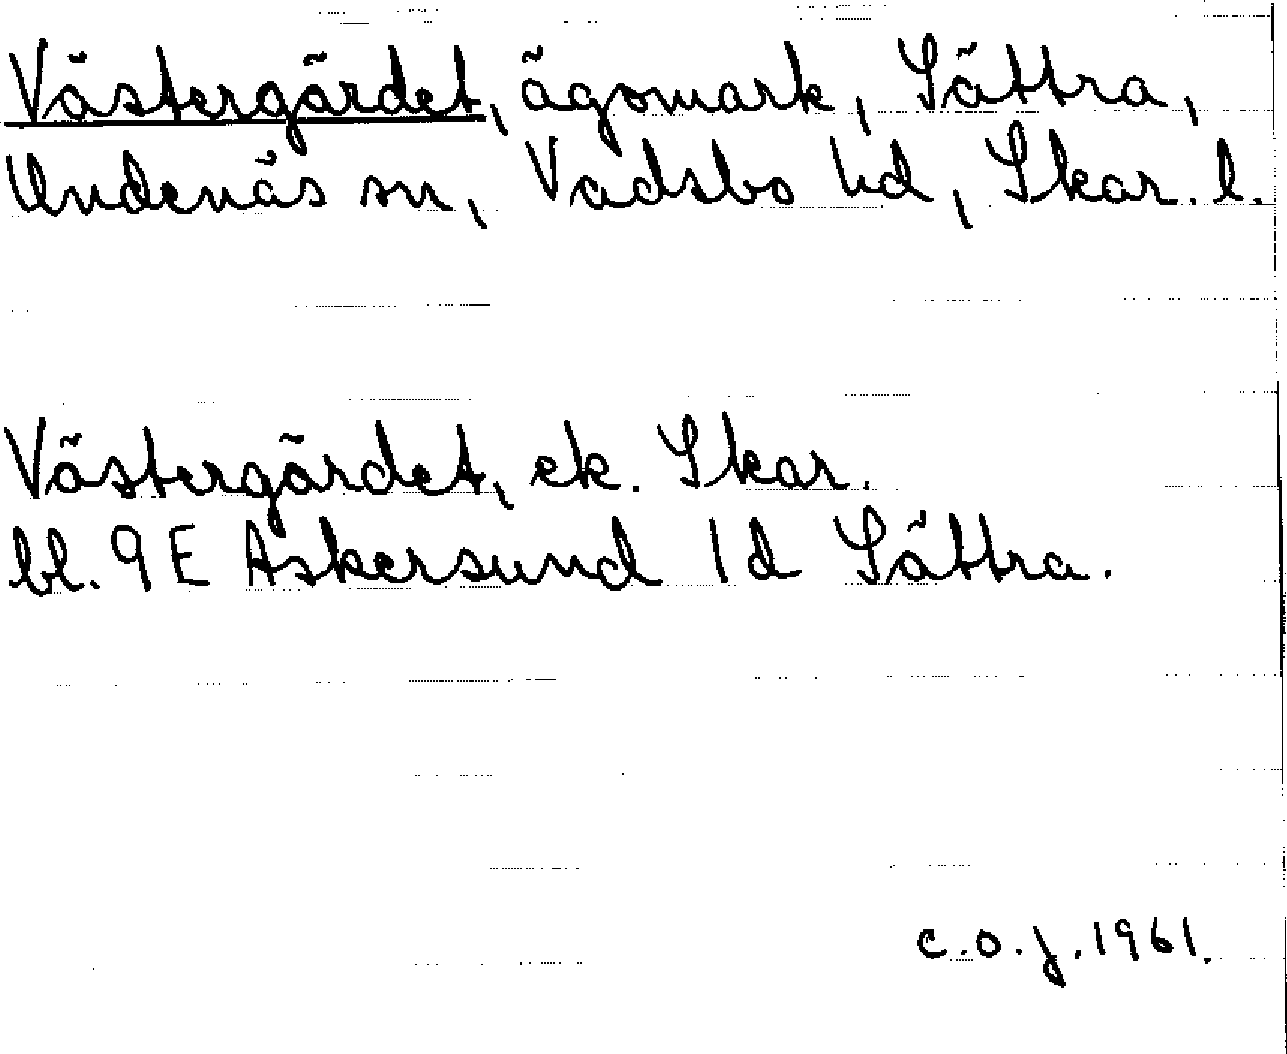 Västergärdet, ägomark, Sättra,
Undenäs sn, Vadsbo hd, Skar. l.
Västergärdet, ek. Skar.
bl. 9E Askersund 1d Sättra.
C.O.J. 1961.